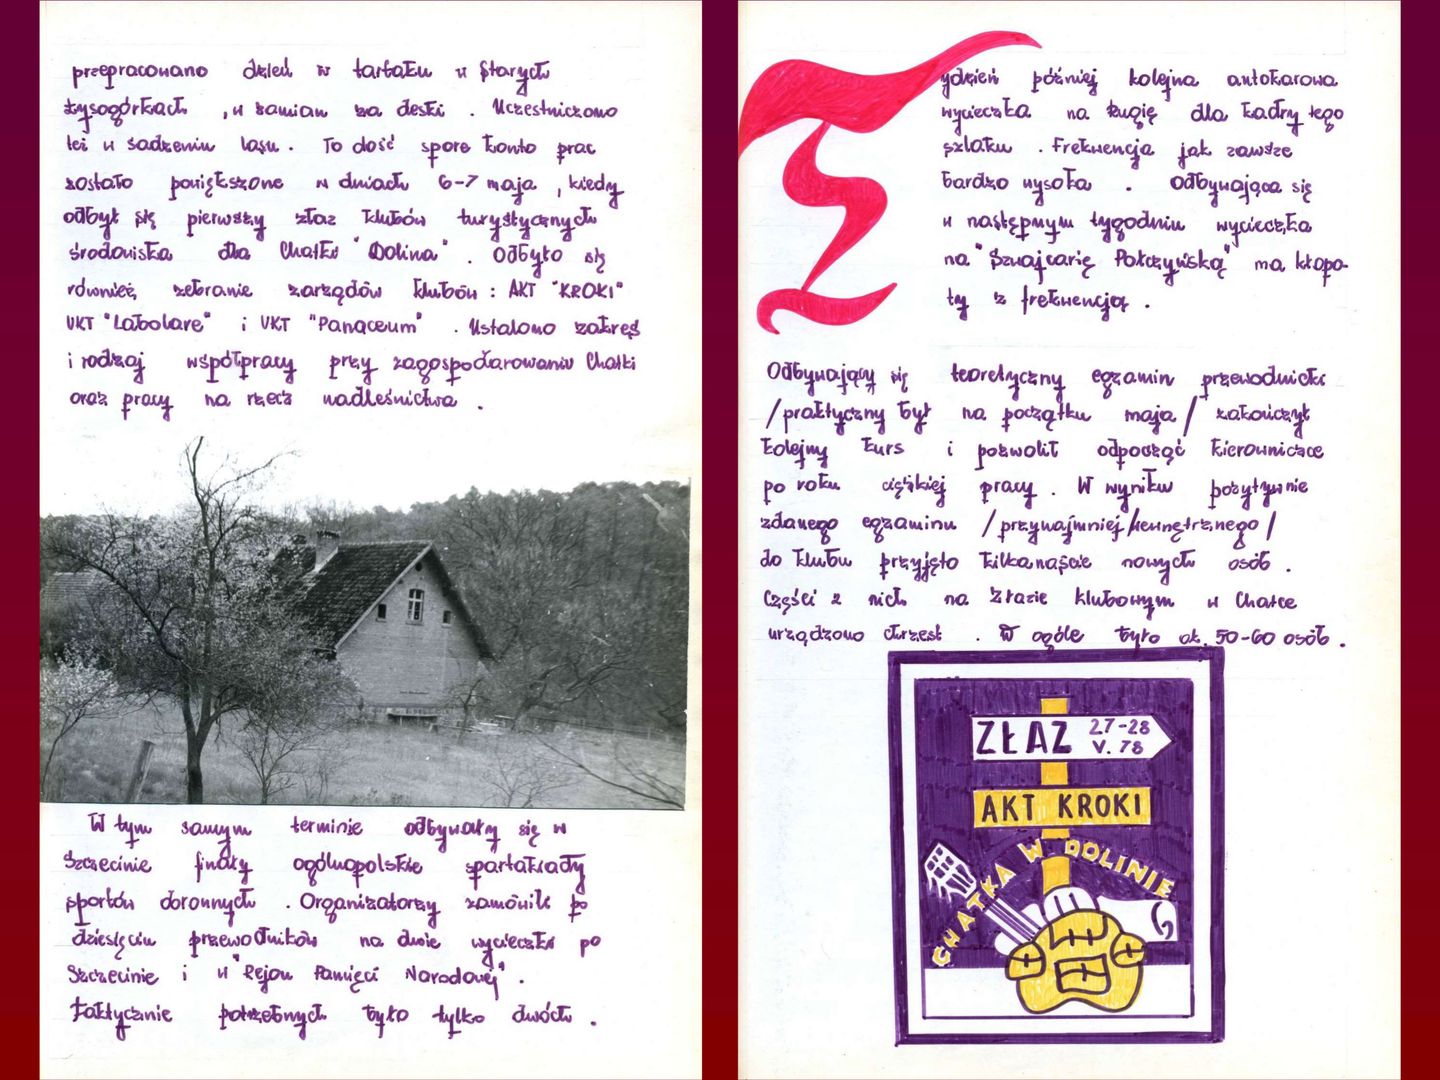 przepracowano dzień w tartaku w Starych
Łysogórkach , w zamian za deski . Uczestniczono
też w sadzeniu lasu . To dość spore konto prac
zostało powiększone w dniach 6-7 maja , kiedy
odbył się pierwszy złaz klubów turystycznych
środowiska dla Chatki "Dolina" . Odbyło się
również zebranie zarządów klubów : AKT "KROKI"
UKT "Latolare" i UKT "Panaceum" . Ustalono zakres
i rodzaj współpracy przy zagospodarowaniu Chatki
oraz pracy na rzecz nadleśnictwa .
W tym samym terminie odbywały się w
Szczecinie finały ogólnopolskie spartakiady
sportów obronnych . Organizatorzy zamówili po
dziesięciu przewodników na dwie wycieczki po
Szczecinie i w "Rejon Pamięci Narodowej" .
Faktycznie potrzebnych było tylko dwóch .
Tydzień później kolejna autokarowa
wycieczka na Rugię dla kadry tego
szlaku . Frekwencja jak zawsze
bardzo wysoka . Odbywająca się
w następnym tygodniu wycieczka
na "Szwajcarię Połczyńską" ma kłopo-
ty z frekwencją .
Odbywający się teoretyczny egzamin przewodnicki
/praktyczny był na początku maja/ zakończył
kolejny kurs i pozwolił odpocząć kierownictwu
po roku ciężkiej pracy . W wyniku pozytywnie
zdanego egzaminu /przynajmniej wewnętrznego/
do klubu przyjęto kilkanaście nowych osób .
Części z nich na złazie klubowym w Chatce
urządzono chrzest . W ogóle było ok. 50-60 osób .
ZŁAZ 27-28
V. 78
AKT KROKI
CHATKA W DOLINIE